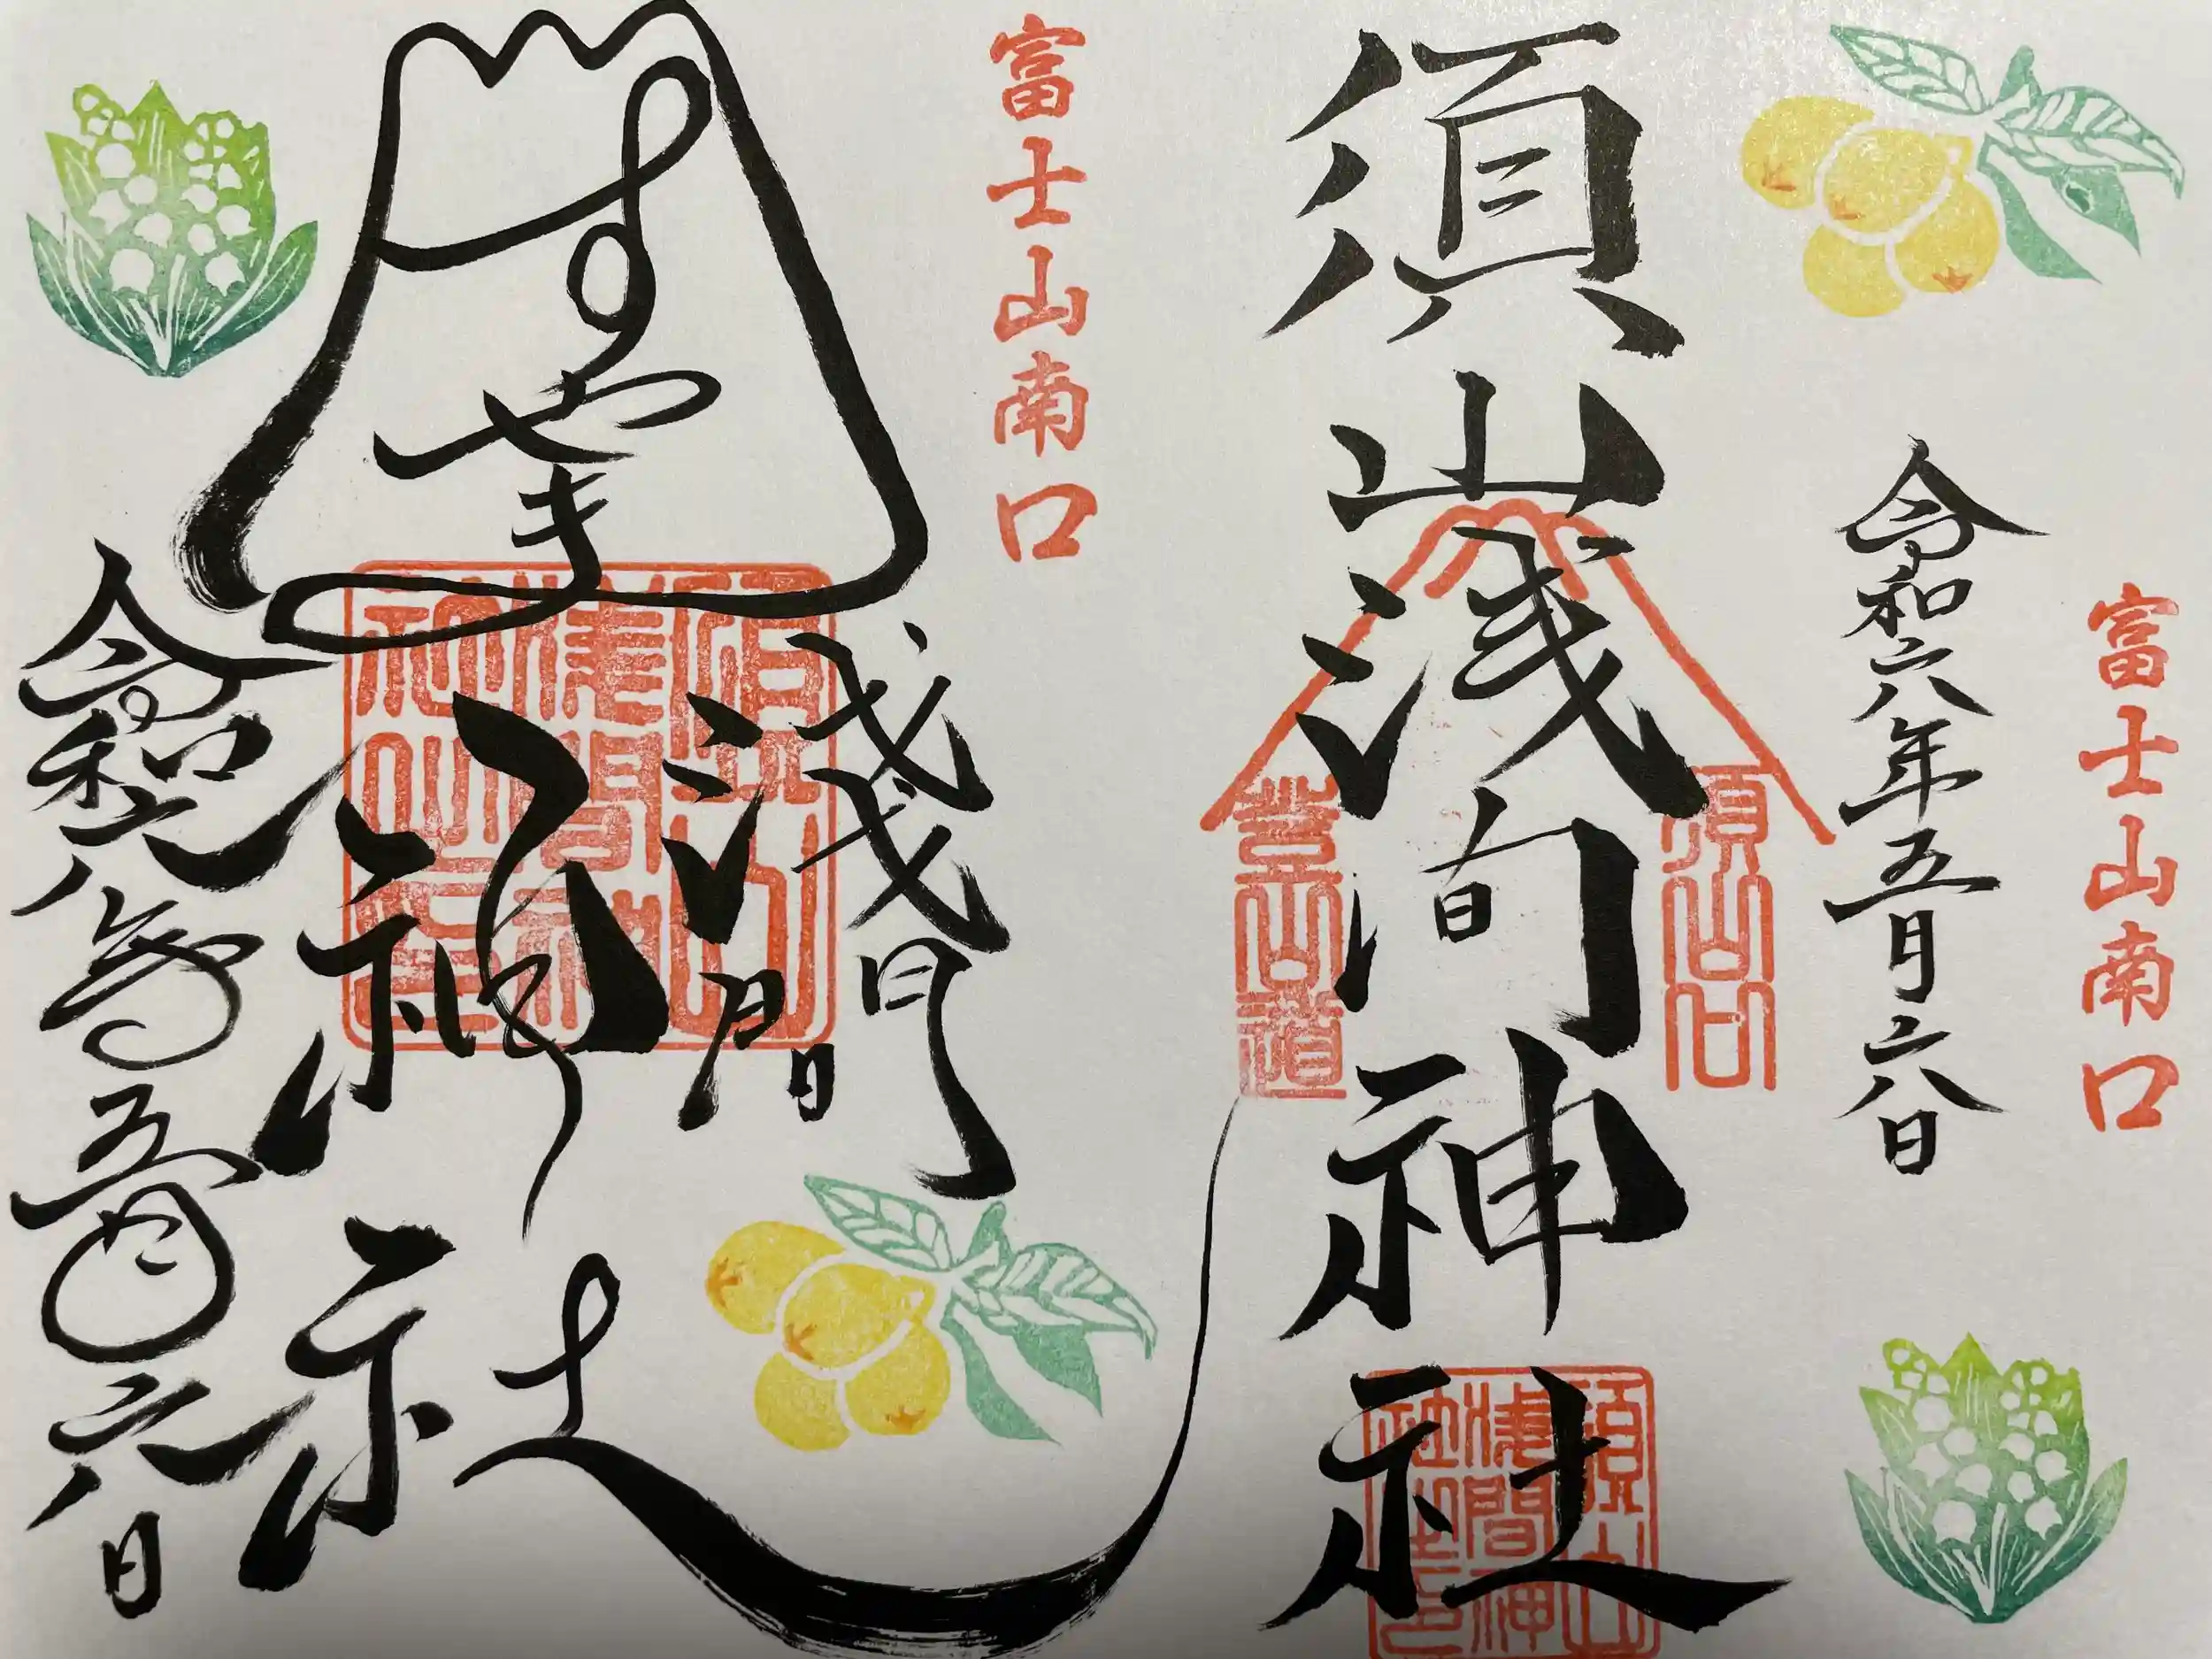 富士山南口
令和六年五月六日
須山浅间神社
須山口
登山道
須山浅間神社之印
富士山南口
すやま
浅間
神社
令和六年五月六日